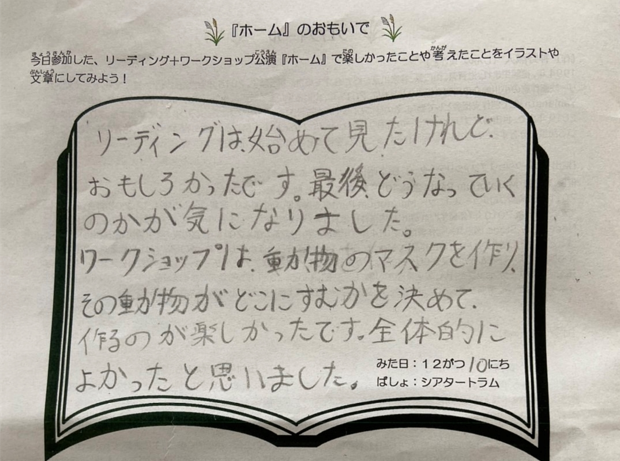 『ホーム』のおもいで
今日参加した、リーディング+ワークショップ公演『ホーム』で楽しかったことや考えたことをイラストや
文章にしてみよう！
リーディングは、始めて見たけれど、
おもしろかったです。最後、どうなっていく
のかが気になりました。
ワークショップは、動物のマスクを作り、
その動物がどこにすむかを決めて、
作るのが楽しかったです。全体的に
よかったと思いました。
みた日：12がつ10にち
ばしょ：シアタートラム